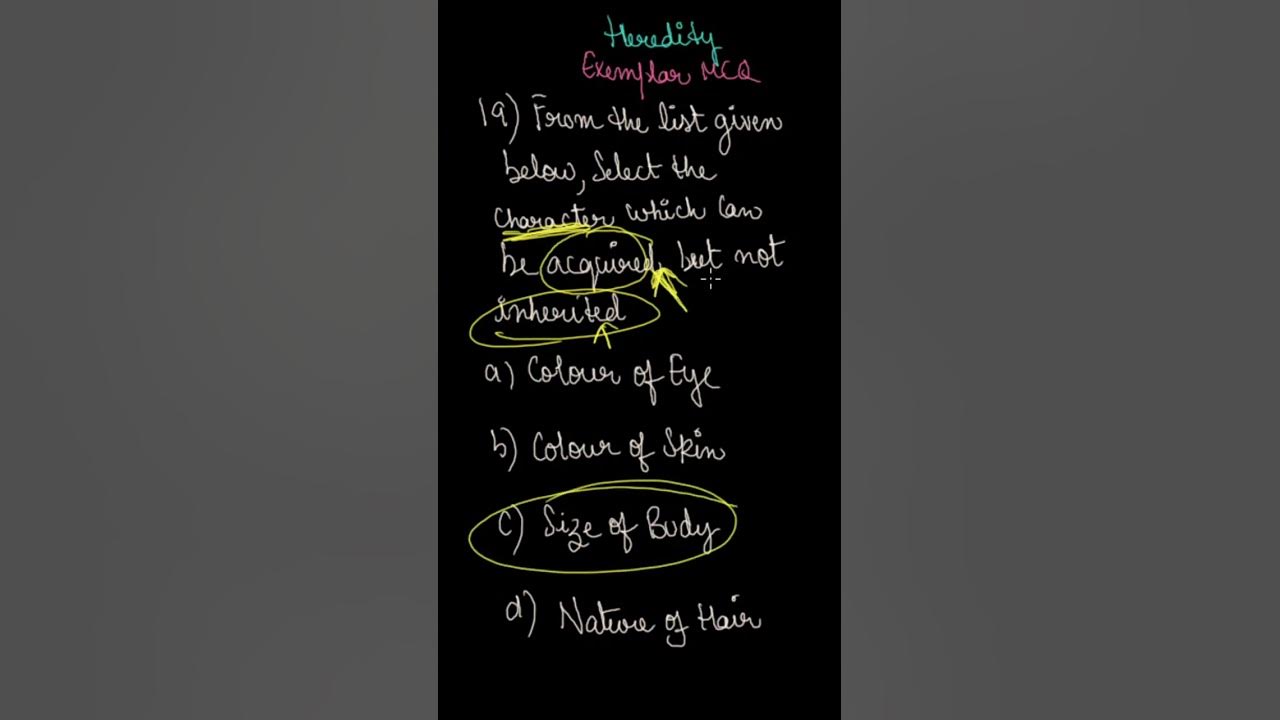 Heredity
Exemplar MCQ
19) From the list given
below, Select the
character which can
be acquired, but not
inherited
a) Colour of Eye
b) Colour of Skin
c) Size of Body
d) Nature of Hair